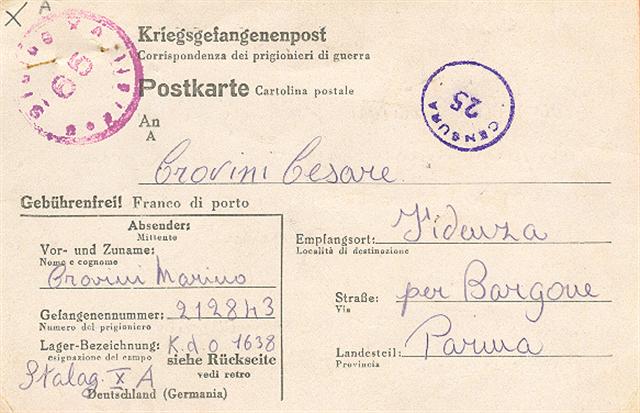 X A
Kriegsgefangenenpost
Corrispondenza dei prigionieri di guerra
Postkarte Cartolina postale
CENSURA
25
An
A
Crovini Cesare
Gebührenfrei! Franco di porto
Absender:
Mittente
Vor- und Zuname:
Nome e cognome
Crovini Marino
Gefangenennummer: 212843
Numero del prigioniero
Lager-Bezeichnung: K.do 1638
esignazione del campo
siehe Rückseite
vedi retro
Stalag X A
Deutschland (Germania)
Empfangsort: Fidenza
Località di destinazione
Straße: per Bargone
Via
Landesteil: Parma
Provincia